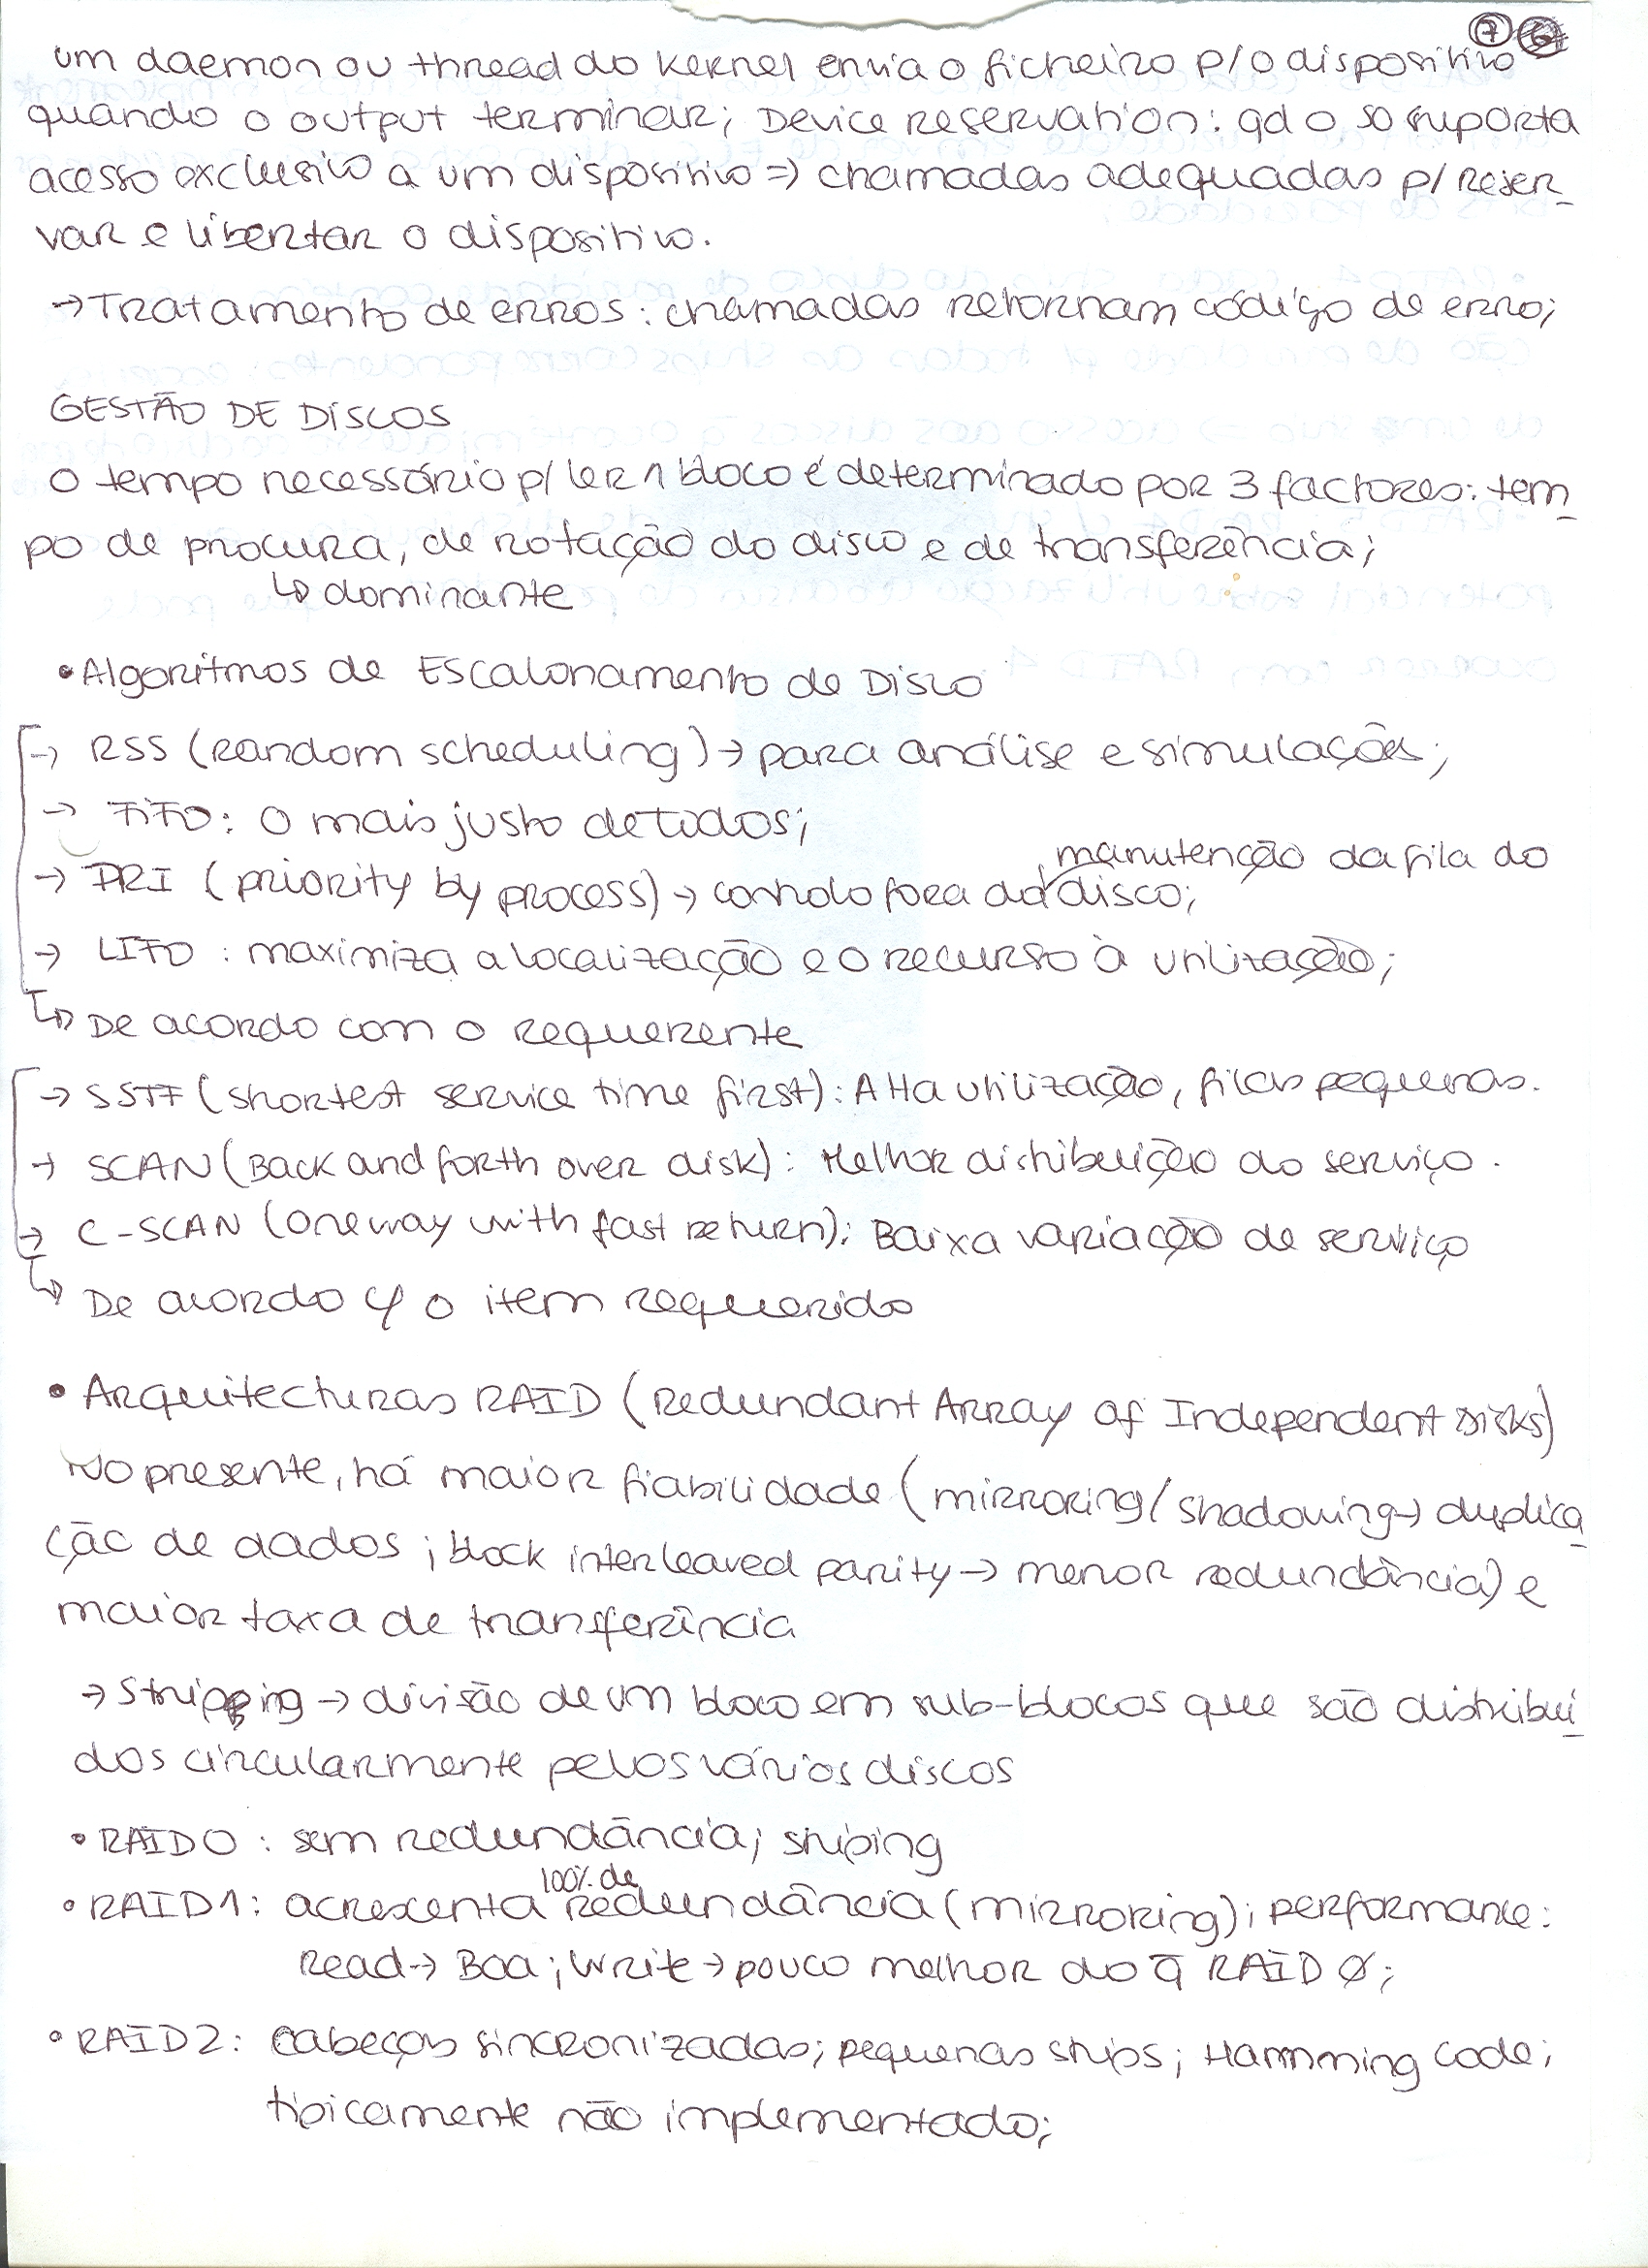 7
um daemon ou thread do kernel envia o ficheiro p/ o dispositivo
quando o output terminar; Device Reservation: qd o so suporta
acesso exclusivo a um dispositivo => chamadas adequadas p/ reser-
var e libertar o dispositivo.
→ Tratamento de erros: chamadas retornam código de erro;
GESTÃO DE DISCOS
O tempo necessário p/ ler 1 bloco é determinado por 3 factores: tem-
po de procura, de rotação do disco e de transferência;
↳ dominante
• Algoritmos de Escalonamento de Disco
→ RSS (random scheduling) → para análise e simulações;
→ FIFO: o mais justo de todos;
→ PRI (priority by process) → controlo fora da manutenção da fila do disco;
→ LIFO: maximiza a localização e o recurso à utilização;
↳ De acordo com o requerente
→ SSTF (shortest service time first): Alta utilização, filas pequenas.
→ SCAN (Back and forth over disk): Melhor distribuição do serviço.
→ C-SCAN (one way with fast return): Baixa variação de serviço
↳ De acordo c/ o item requerido
• Arquitecturas RAID (Redundant Array of Independent Disks)
No presente, há maior fiabilidade (mirroring/shadowing → duplica-
ção de dados; block interleaved parity → menor redundância) e
maior taxa de transferência
→ Striping → divisão de um bloco em sub-blocos que são distribuí-
dos circularmente pelos vários discos
• RAID0: sem redundância; striping
• RAID1: acrescenta 100% de redundância (mirroring); performance:
Read → Boa; Write → pouco melhor do q̄ RAID Ø;
• RAID2: Cabeças sincronizadas; pequenas strips; Hamming code;
tipicamente não implementado;